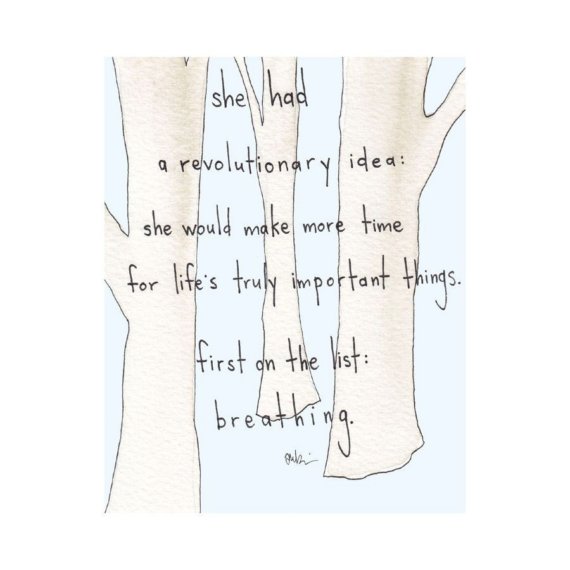 she had
a revolutionary idea:
she would make more time
for life's truly important things.
first on the list:
breathing.